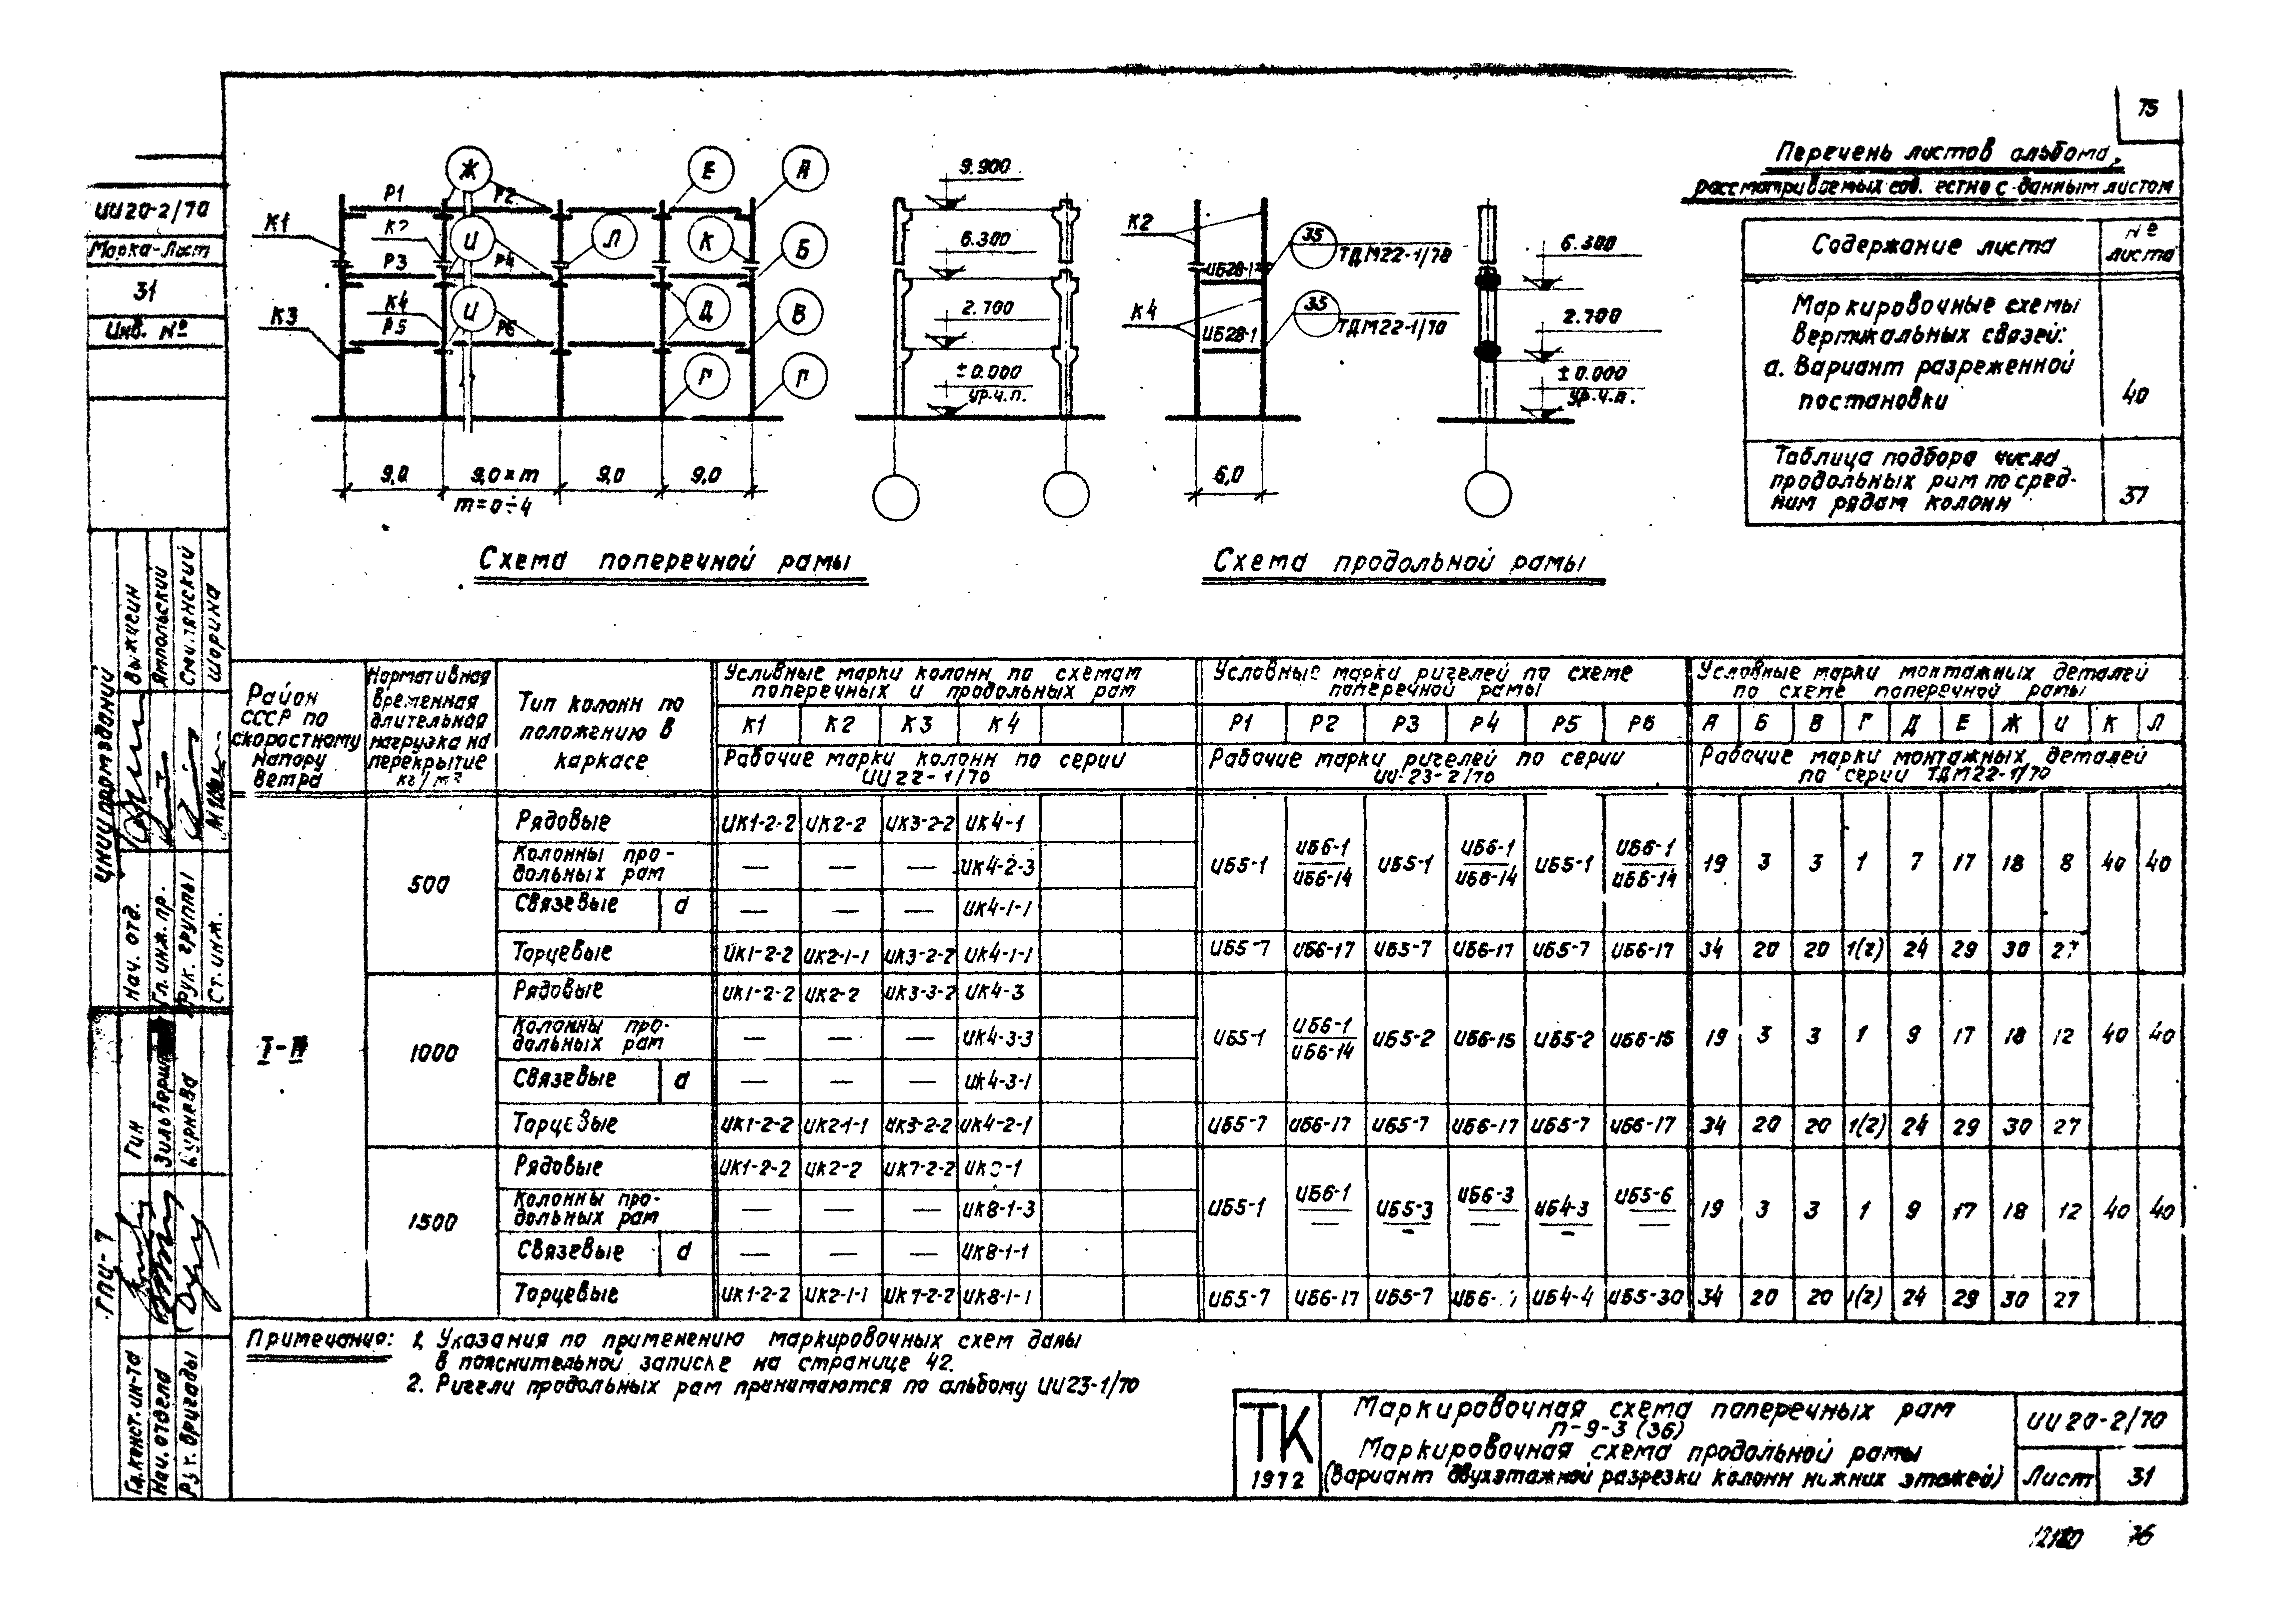 75
Перечень листов альбома,
рассматриваемых совместно с данным листом
Содержание листа
№ листа
Маркировочные схемы
вертикальных связей:
а. Вариант разреженной
постановки
40
Таблица подбора числа
продольных рам по сред-
ним рядам колонн
37
ИИ20-2/70
Марка-Лист
31
Инв. №
Ж Е А
Р1 Р2
К1 К2 И Л К Б
Р3 Р4
К3 К4 И Д В
Р5 Р6
Г Г
9,0 9,0×m 9,0 9,0
m=0÷4
9.900
6.300
2.700
±0.000
ур.ч.п.
К2 35 ТДМ22-1/70
ИБ28-1
К4 35 ТДМ22-1/70
ИБ28-1
6,0
6.300
2.700
±0.000
ур.ч.п.
Схема поперечной рамы
Схема продольной рамы
Район
СССР по
скоростному
напору
ветра
Нормативная
временная
длительная
нагрузка на
перекрытие
кг/м²
Тип колонн по
положению в
каркасе
Условные марки колонн по схемам
поперечных и продольных рам
К1 К2 К3 К4
Рабочие марки колонн по серии
ИИ22-1/70
Условные марки ригелей по схеме
поперечной рамы
Р1 Р2 Р3 Р4 Р5 Р6
Рабочие марки ригелей по серии
ИИ-23-2/70
Условные марки монтажных деталей
по схеме поперечной рамы
А Б В Г Д Е Ж И К Л
Рабочие марки монтажных деталей
по серии ТДМ22-1/70
I-IV
500
Рядовые ИК1-2-2 ИК2-2 ИК3-2-2 ИК4-1
Колонны про-
дольных рам — — — ИК4-2-3
Связевые d — — — ИК4-1-1
ИБ5-1 ИБ6-1 ИБ5-1 ИБ6-1 ИБ5-1 ИБ6-1 19 3 3 1 7 17 18 8 40 40
ИБ6-14 ИБ6-14 ИБ6-14
Торцевые ИК1-2-2 ИК2-1-1 ИК3-2-2 ИК4-1-1 ИБ5-7 ИБ6-17 ИБ5-7 ИБ6-17 ИБ5-7 ИБ6-17 34 20 20 1(2) 24 29 30 27
1000
Рядовые ИК1-2-2 ИК2-2 ИК3-3-2 ИК4-3
Колонны про-
дольных рам — — — ИК4-3-3
Связевые d — — — ИК4-3-1
ИБ5-1 ИБ6-1 ИБ5-2 ИБ6-15 ИБ5-2 ИБ6-15 19 3 3 1 9 17 18 12 40 40
ИБ6-14
Торцевые ИК1-2-2 ИК2-1-1 ИК3-2-2 ИК4-2-1 ИБ5-7 ИБ6-17 ИБ5-7 ИБ6-17 ИБ5-7 ИБ6-17 34 20 20 1(2) 24 29 30 27
1500
Рядовые ИК1-2-2 ИК2-2 ИК7-2-2
Колонны про-
дольных рам — — — ИК8-1-3
Связевые d — — — ИК8-1-1
ИБ5-1 ИБ6-1 ИБ5-3 ИБ6-3 ИБ4-3 ИБ5-6 19 3 3 1 9 17 18 12 40 40
— — — — —
Торцевые ИК1-2-2 ИК2-1-1 ИК7-2-2 ИК8-1-1 ИБ5-7 ИБ6-17 ИБ5-7 ИБ4-4 ИБ5-30 34 20 20 1(2) 24 29 30 27
Примечания: 1. Указания по применению маркировочных схем даны
в пояснительной записке на странице 42.
2. Ригели продольных рам принимаются по альбому ИИ23-1/70
ТК
1972
Маркировочная схема поперечных рам
П-9-3 (36)
Маркировочная схема продольной рамы
(Вариант двухэтажной разрезки колонн нижних этажей)
ИИ20-2/70
Лист 31
76
ЦНИИпромзданий
Нач. отд. Выжигин
Гл. инж. пр. Ямпольский
Рук. группы Смилянский
Ст. инж. Шорина
ГПИ-7
Гл. конст. ин-та Гин
Нач. отдела
Рук. бригады